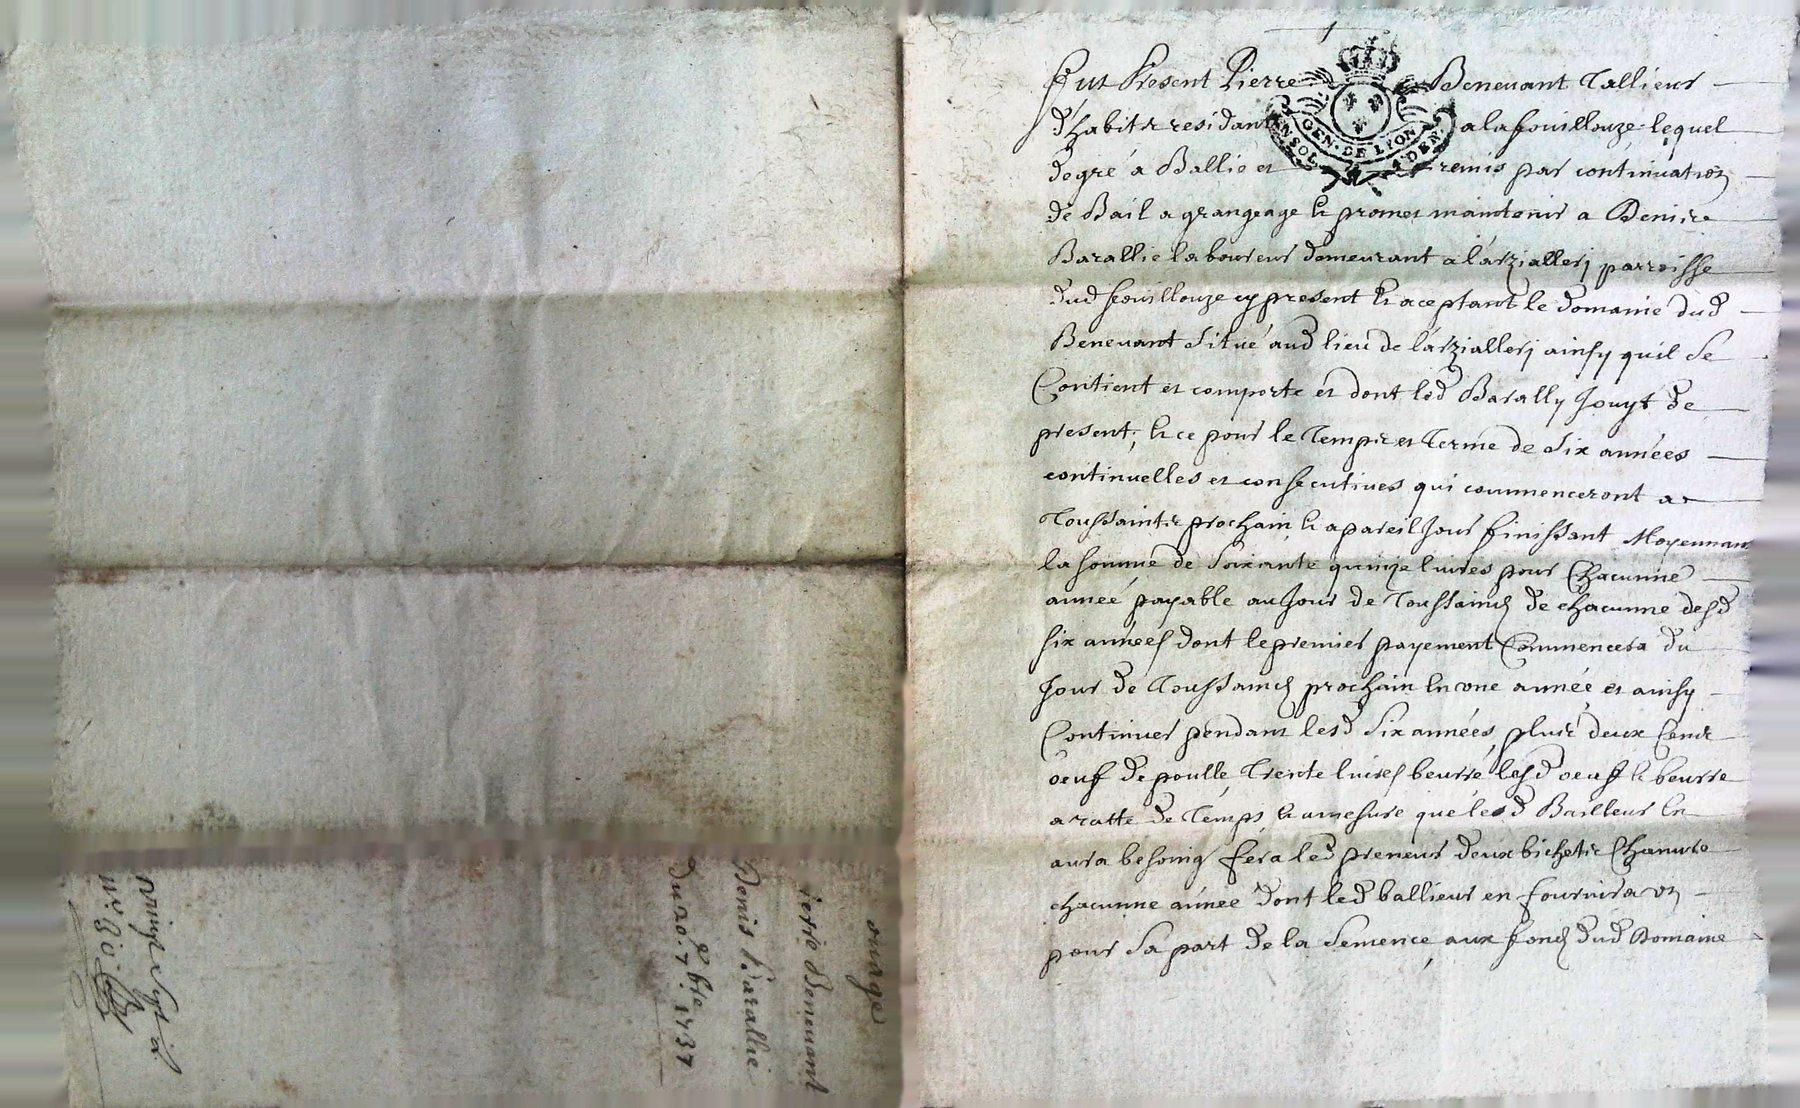 Fut Present Pierre Benevant Tallieur
d'habits residant a la fouillouze lequel
de gré à Ballié et remis par continuation
de Bail a grangeage et promet maintenir a Denis
Barallie laboureur demeurant a l'arziallerj parroisse
dud fouillouze cy present et aceptant le domaine dud
Benevant situé aud lieu de l'arziallerj ainsy quil se
Contient et comporte et dont led Barally Jouyt de
present, et ce pour le Temps et Terme de six années
continuelles et consecutives qui commenceront a
Toussaints prochain et a pareil Jour finissant Moyennant
la somme de soixante quinze livres pour Chacunne
année payable au Jour de Toussaincts de chacunne desd
six années dont le premier payement Commencera du
Jour de Toussaincts prochain en une année et ainsy
Continuer pendant lesd six années, plus deux Cents
oeuf de poulle, Trente livres beurre, lesd oeuf et beurre
a ratte de Temps et a mesure que led Bailleur en
aura besoing fera led preneur deux bichets Chanvre
chacunne année dont led ballieur en fournira un
pour sa part de la semence, aux fonds dud Domaine
GEN·DE LION
SOL 4 DEN
Pierre Benevant
Denis Barallie
Du 20. 7bre 1737